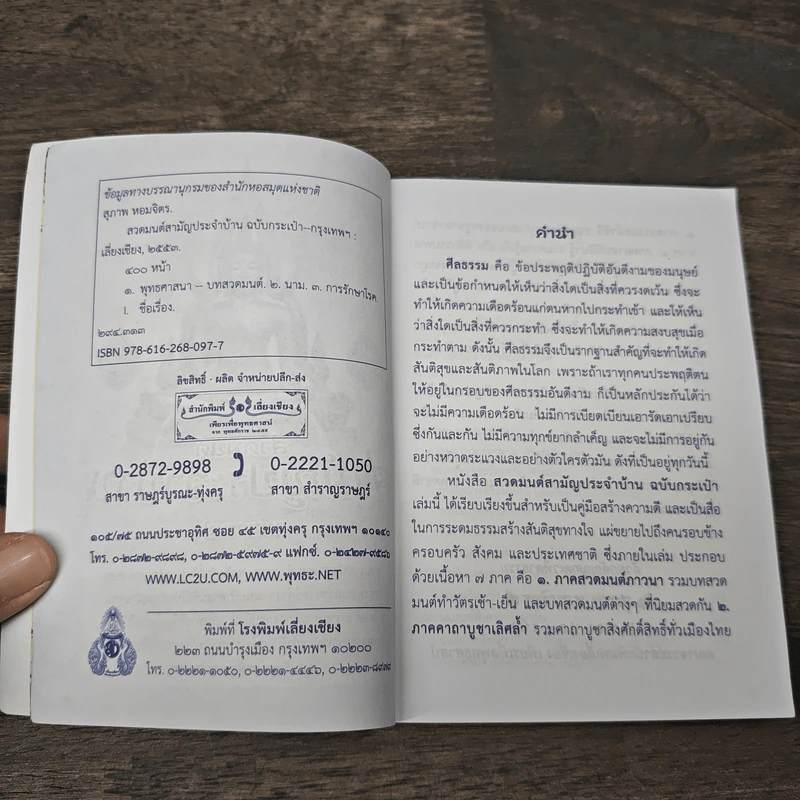 ข้อมูลทางบรรณานุกรมของสำนักหอสมุดแห่งชาติ
สุภาพ หอมจิตร.
สวดมนต์สามัญประจำบ้าน ฉบับกระเป๋า--กรุงเทพฯ :
เลี่ยงเชียง, ๒๕๕๓.
๔๐๐ หน้า
๑. พุทธศาสนา -- บทสวดมนต์. ๒. นาม. ๓. การรักษาโรค.
I. ชื่อเรื่อง.
๒๙๔.๓๑๓
ISBN 978-616-268-097-7
ลิขสิทธิ์ · ผลิต จำหน่ายปลีก-ส่ง
สำนักพิมพ์ เลี่ยงเชียง
เพียรเพื่อพุทธศาสน์
0-2872-9898 0-2221-1050
สาขา ราษฎร์บูรณะ-ทุ่งครุ สาขา สำราญราษฎร์
๑๐๕/๗๕ ถนนประชาอุทิศ ซอย ๔๕ เขตทุ่งครุ กรุงเทพฯ ๑๐๑๔๐
โทร. ๐-๒๘๗๒-๙๘๙๘, ๐-๒๘๗๒-๕๙๗๕-๙ แฟกซ์. ๐-๒๔๒๗-๙๕๘๖
WWW.LC2U.COM, WWW.พุทธะ.NET
พิมพ์ที่ โรงพิมพ์เลี่ยงเชียง
๒๒๓ ถนนบำรุงเมือง กรุงเทพฯ ๑๐๒๐๐
โทร. ๐-๒๒๒๑-๑๐๕๐, ๐-๒๒๒๑-๔๔๔๖, ๐-๒๒๒๓-๘๙๗๙
คำนำ
ศีลธรรม คือ ข้อประพฤติปฏิบัติอันดีงามของมนุษย์
และเป็นข้อกำหนดให้เห็นว่าสิ่งใดเป็นสิ่งที่ควรงดเว้น ซึ่งจะ
ทำให้เกิดความเดือดร้อนแก่ตนหากไปกระทำเข้า และให้เห็น
ว่าสิ่งใดเป็นสิ่งที่ควรกระทำ ซึ่งจะทำให้เกิดความสงบสุขเมื่อ
กระทำตาม ดังนั้น ศีลธรรมจึงเป็นรากฐานสำคัญที่จะทำให้เกิด
สันติสุขและสันติภาพในโลก เพราะถ้าเราทุกคนประพฤติตน
ให้อยู่ในกรอบของศีลธรรมอันดีงาม ก็เป็นหลักประกันได้ว่า
จะไม่มีความเดือดร้อน ไม่มีการเบียดเบียนเอารัดเอาเปรียบ
ซึ่งกันและกัน ไม่มีความทุกข์ยากลำเค็ญ และจะไม่มีการอยู่กัน
อย่างหวาดระแวงและอย่างตัวใครตัวมัน ดังที่เป็นอยู่ทุกวันนี้
หนังสือ สวดมนต์สามัญประจำบ้าน ฉบับกระเป๋า
เล่มนี้ ได้เรียบเรียงขึ้นสำหรับเป็นคู่มือสร้างความดี และเป็นสื่อ
ในการระดมธรรมสร้างสันติสุขทางใจ แผ่ขยายไปถึงคนรอบข้าง
ครอบครัว สังคม และประเทศชาติ ซึ่งภายในเล่ม ประกอบ
ด้วยเนื้อหา ๗ ภาค คือ ๑. ภาคสวดมนต์ภาวนา รวมบทสวด
มนต์ทำวัตรเช้า-เย็น และบทสวดมนต์ต่างๆ ที่นิยมสวดกัน ๒.
ภาคคาถาบูชาเลิศล้ำ รวมคาถาบูชาสิ่งศักดิ์สิทธิ์ทั่วเมืองไทย